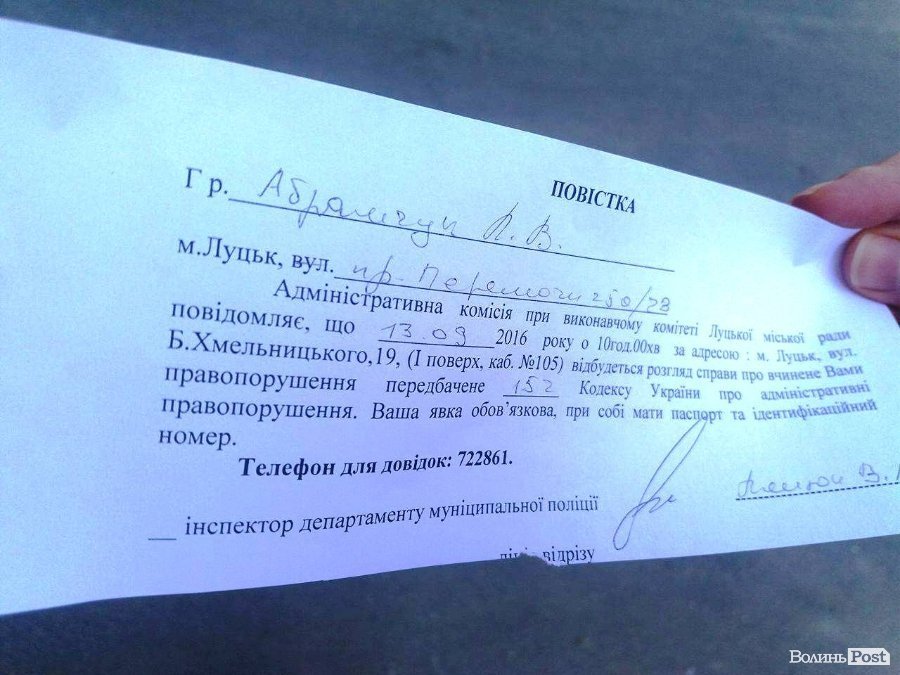 ПОВІСТКА
Гр. Абрамчук Л. В.
м.Луцьк, вул. пр. Перемоги
Адміністративна комісія при виконавчому комітеті Луцької міської ради
повідомляє, що 13.09 2016 року о 10год.00хв за адресою : м. Луцьк, вул.
Б.Хмельницького,19, (І поверх, каб. №105) відбудеться розгляд справи про вчинене Вами
правопорушення передбачене 152 Кодексу України про адміністративні
правопорушення. Ваша явка обов’язкова, при собі мати паспорт та ідентифікаційний
номер.
Телефон для довідок: 722861.
__ інспектор департаменту муніципальної поліції
лінія відрізу
ВолиньPost